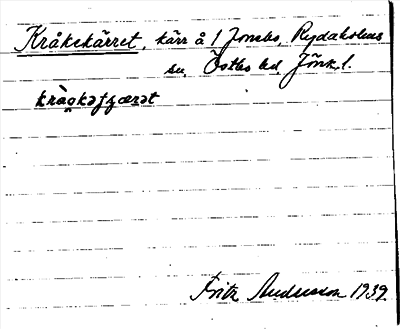 Kråkekärret, kärr å 1 Jombo, Rydaholms
sn, Östbo hd, Jönk. l.
kràǫkəʃʃærət
Fritz Andersson 1939.